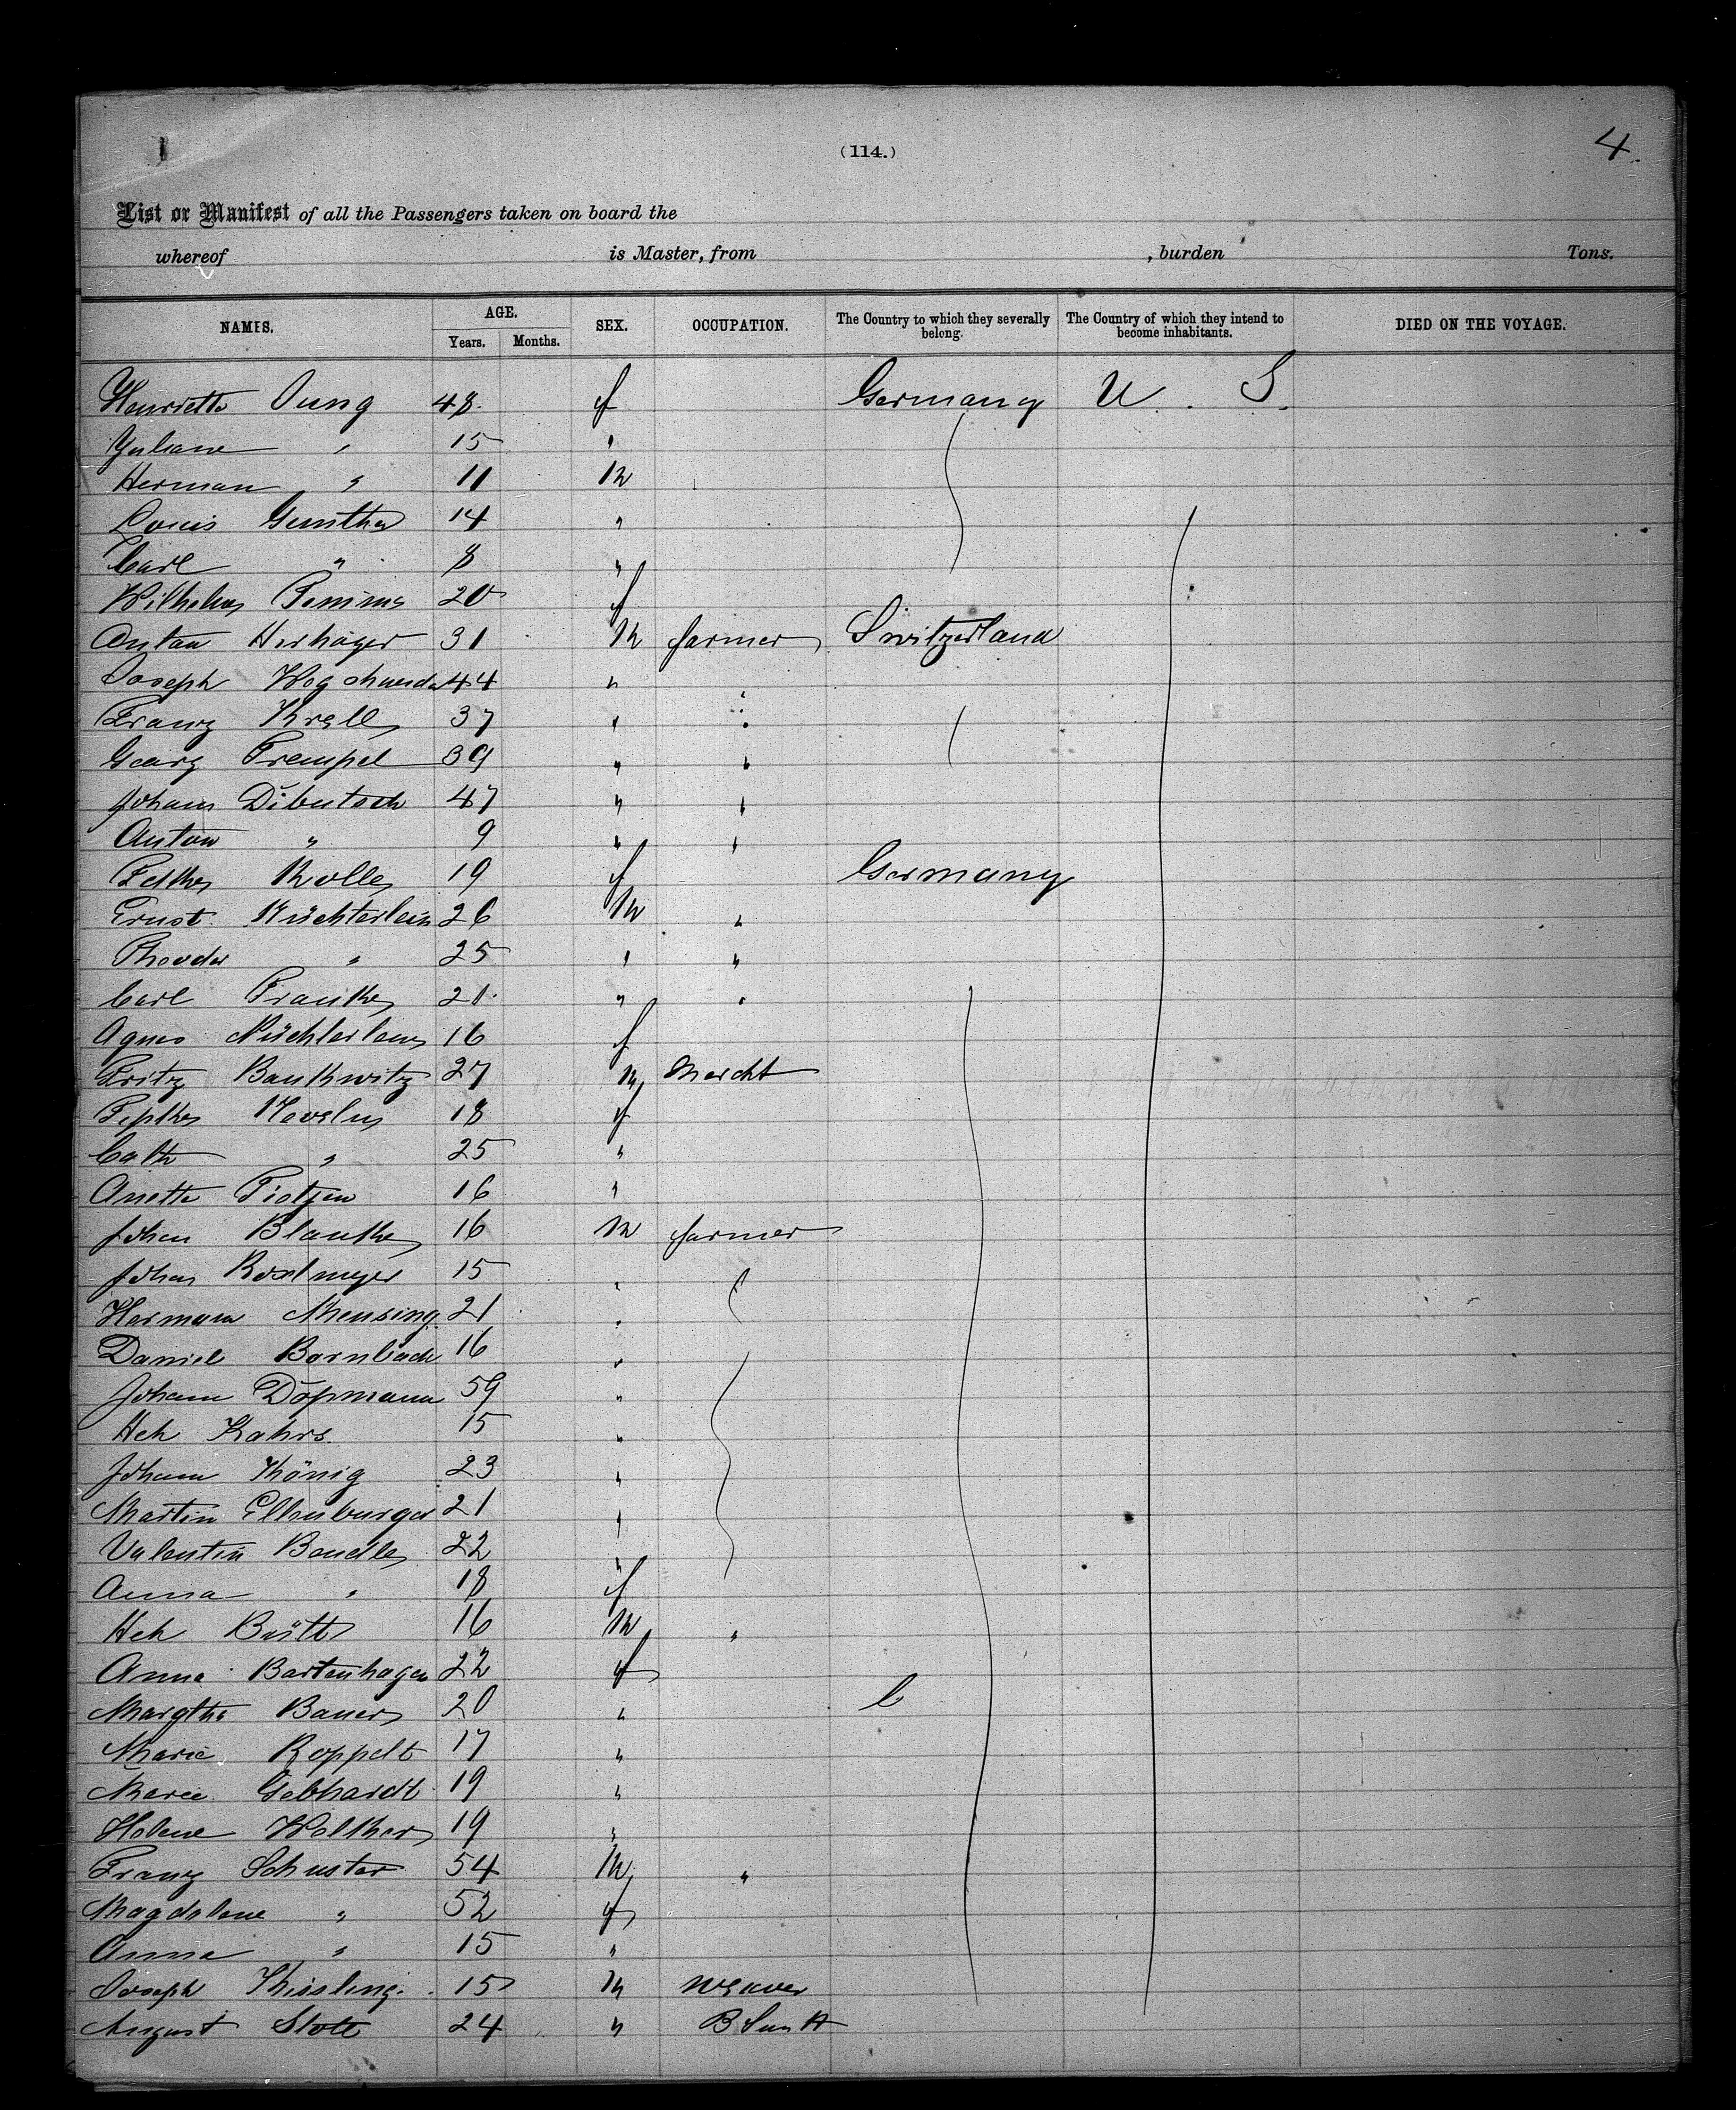 (114.)
4.
List or Manifest of all the Passengers taken on board the
whereof is Master, from , burden Tons.
NAMES. AGE. SEX. OCCUPATION. The Country to which they severally belong. The Country of which they intend to become inhabitants. DIED ON THE VOYAGE.
Years. Months.
Henriette Jung 48. f Germany U. S.
Juliane " 15 "
Herman " 11 M
Louis Gunther 14 "
Carl " 8 "
Wilhelm 20 f
Anton Herhager 31 M farmer Switzerland
Joseph 44 " "
Franz Krell 37 " "
Georg Trempel 39 " "
Johann Dibutsch 47 " "
Anton " 9 " "
19 f Germany
Ernst Nüchterlein 26 M "
Theodor " 25 " "
Carl Franke 21. " "
Agnes Nüchterlein 16 f
Fritz Bankwitz 27 M Mercht
18 f
Cath " 25 "
Anette Tietjen 16 "
Johan Blanke 16 M farmer
Johan 15 "
Hermann Mensing 21 "
Daniel Bornbach 16 "
Johann Döpmann 59 "
Hch Kahrs. 15 "
Johann König 23 "
Martin Ellenburger 21 "
Valentin Bendle 22 "
Anna " 18 f
Hch Bütt 16 M "
Anna Bartenhagen 22 f
Margtha Bauer 20 "
Marie Roppelt 17 "
Marie Gebhardt 19 "
Helene Wolker 19 "
Franz Schuster 54 M "
Magdalene " 52 f
Anna " 15 "
Joseph Kissling. 15 M weaver
August Stolt 24 " B Smth